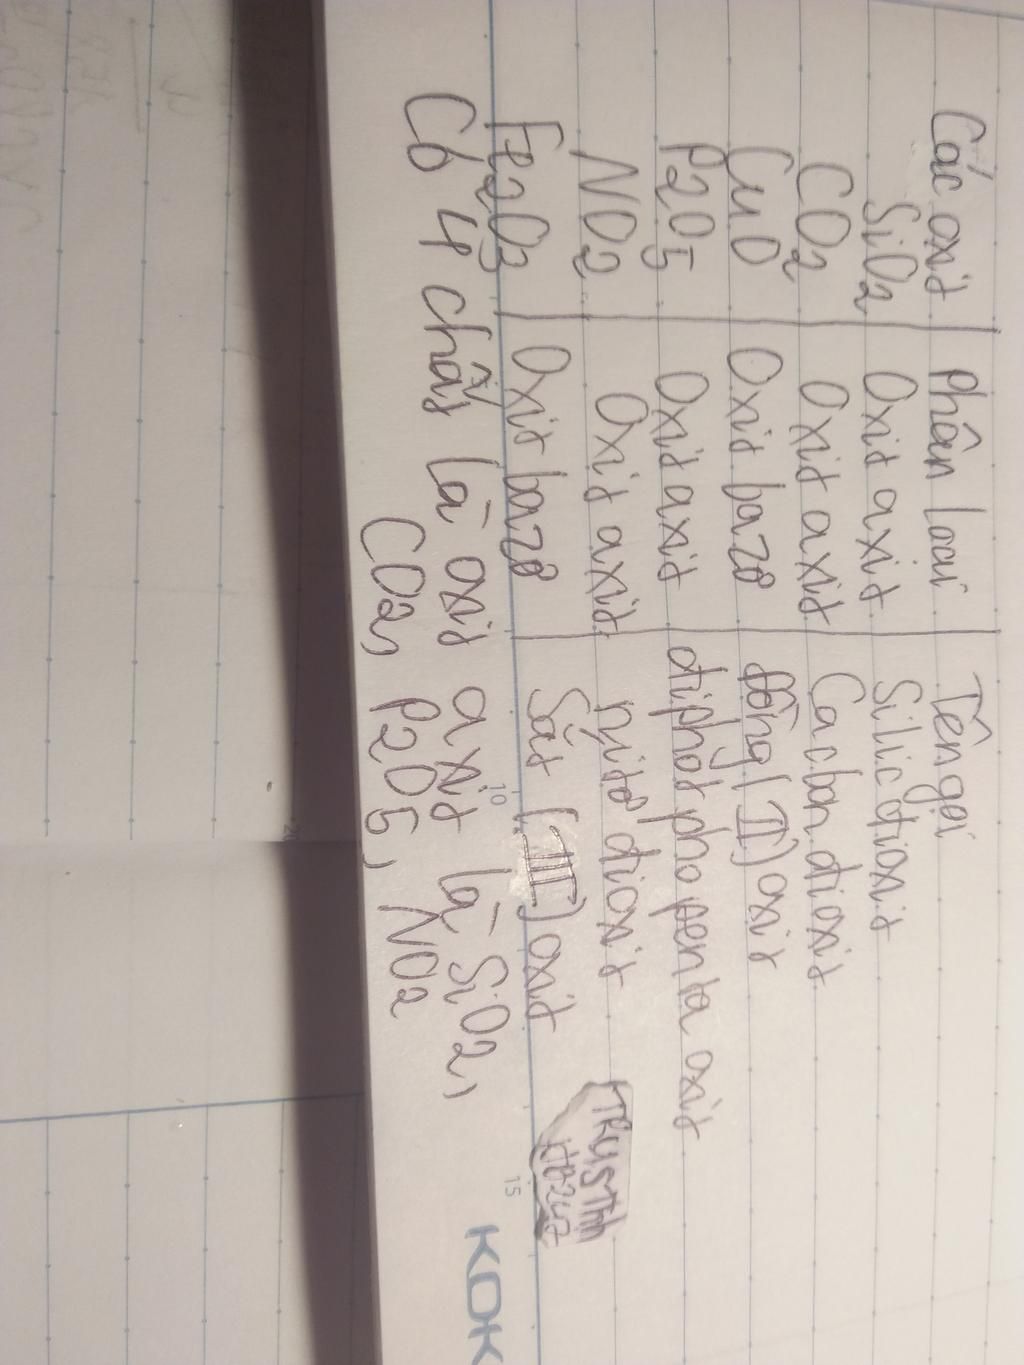 Các oxit Phân loại Tên gọi
SiO2 Oxit axit Silic đioxit
CO2 Oxit axit Cacbon đioxit
CuO Oxit bazơ Đồng (II) oxit
P2O5 Oxit axit điphotpho penta oxit
NO2 Oxit axit nitơ đioxit
Fe2O3 Oxit bazơ Sắt (III) oxit
Có 4 chất là oxit axit là SiO2,
CO2, P2O5, NO2
10
15
KOK